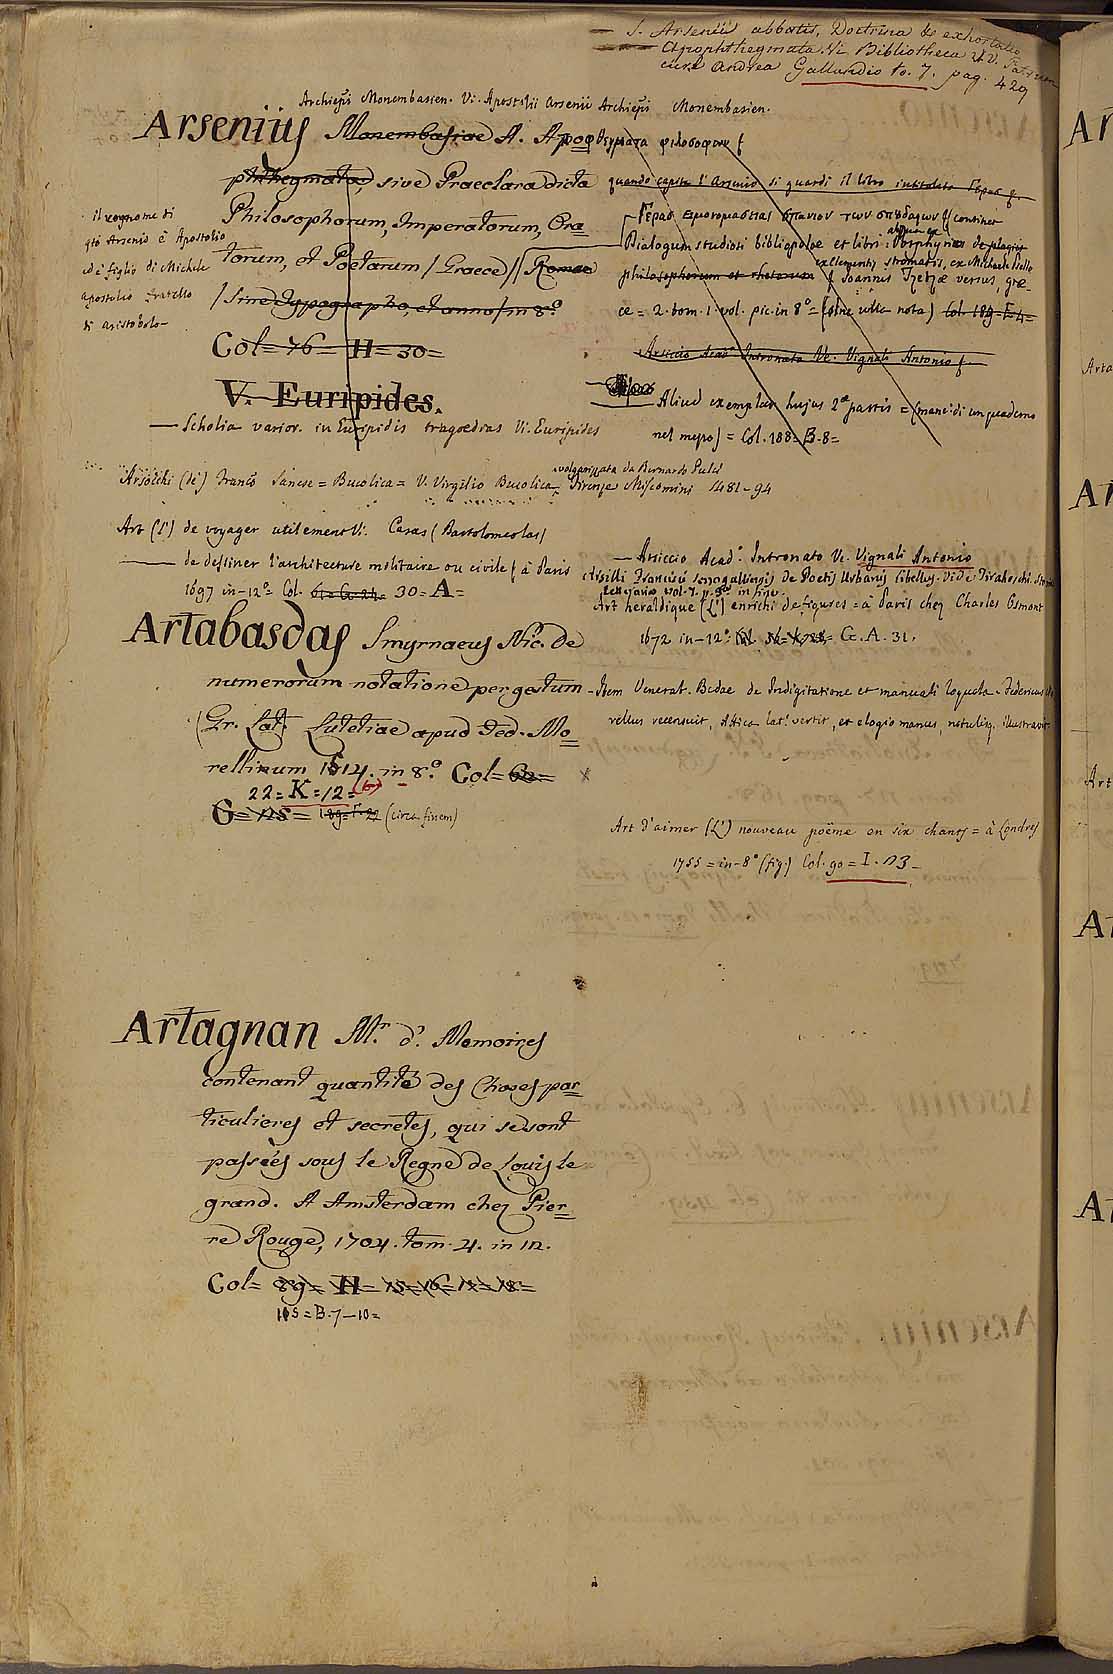 — S. Arsenii abbatis, Doctrina & exhortatio
— Apophthegmata. Vi. Bibliotheca VV. Patrum
cura Andrea Gallandio to. 7. pag. 429
Archiepi Monembasien. Vi. Apostolii Arsenii Archiepi Monembasien.
Arsenius Monembasiae A. Αποφθεγματα φιλοσοφων
phthegmata, sive Praeclara dicta
Philosophorum, Imperatorum, Ora=
torum, et Poetarum / Graece / Romae
/ Sine Typographo, et anno / in 8.o
Col= 76= H= 30=
V. Euripides.
— Scholia varior. in Euripidis tragoedias Vi. Euripides
il cognome di
qto Arsenio è Apostolio
ed è figlio di Michele
apostolio fratello
di aristobolo—
quando capita l'Arsenio si guardi il libro intitolato Γερας
Γερας σπανιον των σπουδαιων continet
Dialogum studiosi bibliopolae et libri: Porphyrii
philosophorum et rhetorum Joannis Tzetzae versus, grae-
ex Clementis stromatis, ex Michaele Psello
ce = 2. tom. 1. vol. pic. in 8o = (sine ulla nota) Col. 189= F. 4=
Arsiccio Acado Intronato Ve. Vignali Antonio
Aliud exemplar hujus 2ae partis = (manc: di un quaderno
nel mezzo) = Col. 188= B. 8=
Arsochi (de') Franco Sanese = Bucolica = V. Virgilio Bucolica, volgarizzata da Bernardo Pulci Firenze Miscomini 1481-94
Art (L') de voyager utilement Vi. Casas (Bartolomeo las)
— de dessiner l'architecture militaire ou civile à Paris
1697 in-12o= Col. 30= A=
— Arsiccio Acad.o Intronato Ve. Vignali Antonio
Arsilli Francisci Senogalliensis De Poetis Urbanis libellus. Vide Tiraboschi. Storia
Art heraldique (L') enrichi de figures = à Paris chez Charles Osmont
1672 in-12o= G. A. 31.
Artabasdas Smyrnaeus Nic. de
numerorum notatione per gestum
(Gr. Lat. Lutetiae apud Fed. Mo=
rellium 1614. in 8.o Col=
22= K= 12=
(circa finem)
– Item Venerab. Bedae de Indigitatione et manuali loquela. Federicus Mo
rellus recensuit, Attica lat. vertit, et elogio manus, notulisq. illustravit
Art d'aimer (L') nouveau poëme en six chants = à Londres
1755 = in-8o (fig.) Col. 90= I. 113—
Artagnan Mr. d'. Memoires
contenant quantité des Choses par=
ticulieres et secretes, qui se sont
passées sous le Regne de Louis le
grand. A Amsterdam chez Pier=
re Rouge, 1704. tom. 4. in 12.
Col= 89= H= 15= 16= 17= 18=
105= B. 7—10=